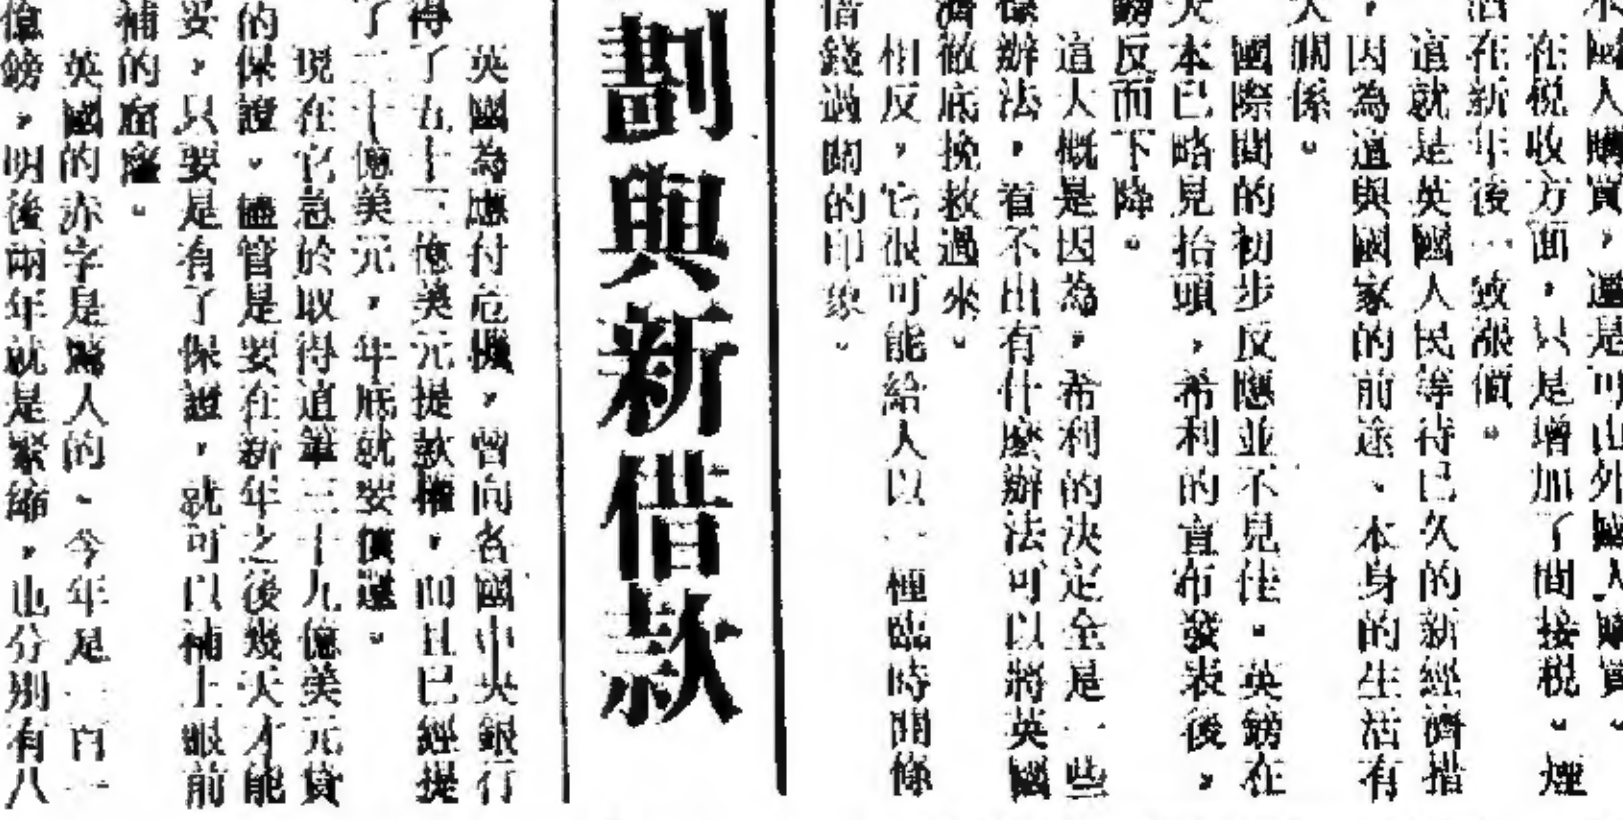 國人購買，還是可由外國人購買。
在稅收方面，只是增加了間接稅。煙
酒在新年後一致漲價。
這就是英國人民等待已久的新經濟措
，因為這與國家的前途、本身的生活有
大關係。
國際間的初步反應並不見佳。英鎊在
大本已略見抬頭，希利的宣布發表後，
鎊反而下降。
這大概是因為，希利的決定全是一些
辦法，看不出有什麼辦法可以將英國
濟徹底挽救過來。
相反，它很可能給人以一種臨時關條
借錢過關的印象。
劃與新借款
英國為應付危機，曾向各國中央銀行
得了五十三億美元提款權，而且已經提
了二十億美元，年底就要償還。
現在它急於取得這筆三十九億美元貸
的保證。儘管是要在新年之後幾天才能
妥，只要是有了保證，就可以補上眼前
補的窟窿。
英國的赤字是驚人的。今年是一百一
億鎊，明後兩年就是緊縮，也分別有八